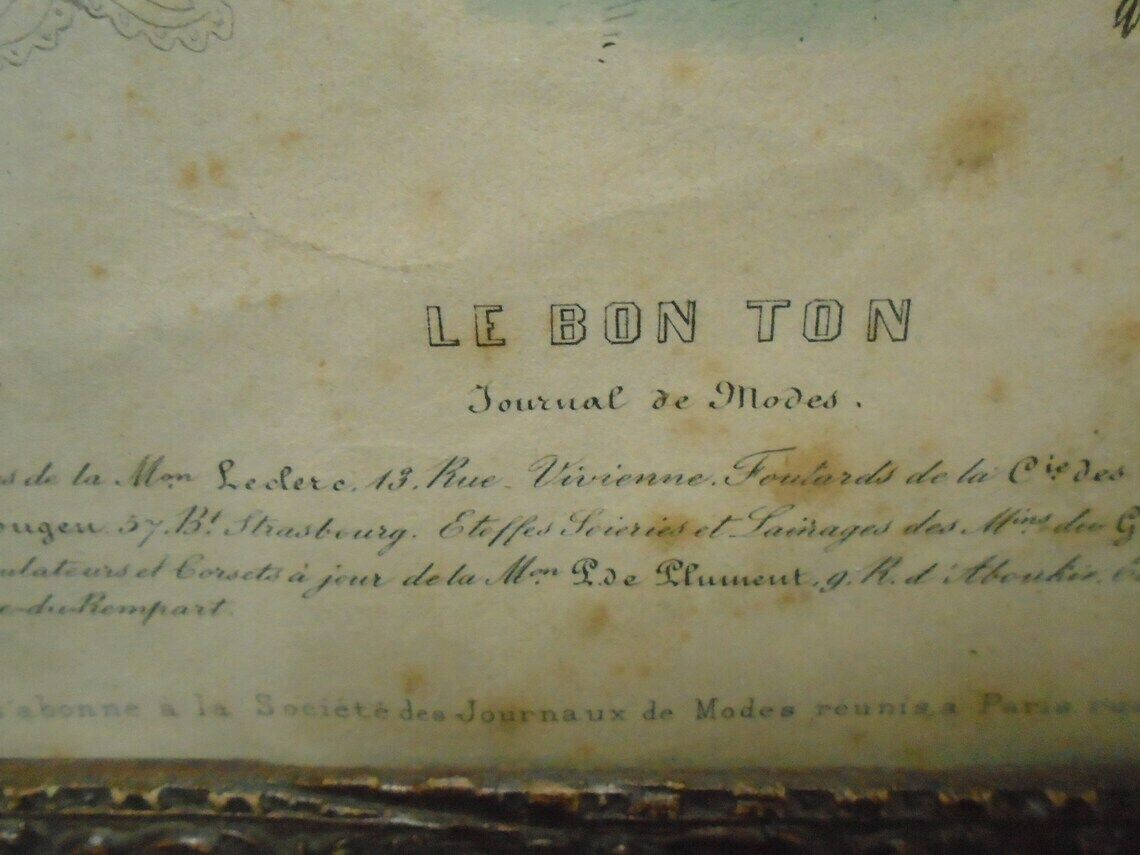 LE BON TON
Journal de Modes.
de la Mon Leclerc, 13, Rue Vivienne, Foulards de la Cie des
ougeu. 57. Bt. Strasbourg. Etoffes Soieries et Lainages des Mins du G
ulateurs et Corsets à jour de la Mon P. de Plument, 9, R. d'Aboukir,
e-du-Rempart.
s'abonne à la Société des Journaux de Modes réunis, a Paris, rue